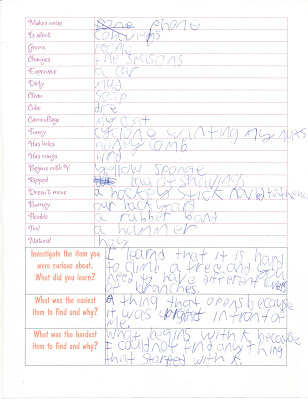 Makes noise phone
Is silent
Grows people
Changes the seasons
Expensive a car
Dirty mud
Clean soap
Cube dice
Camouflage my coat
Funny cyclone wanting my nuts
Has holes honey comb
Has wings bird
Begins with Y yellow sponge
Ripped bag of shavings
Doesn't move a hockey stick
Bumpy our back yard
Flexible a rubber band
Tool a hammer
Natural hay
Investigate the item you
were curious about.
What did you learn?
I learnd that it is hard
to climb a tree and you
need to have different
of branches.
What was the easiest
item to find and why?
A thing that opens because
it was right in front of
me.
What was the hardest
item to find and why?
what begins with k because
I could not find any thing
that started with k.